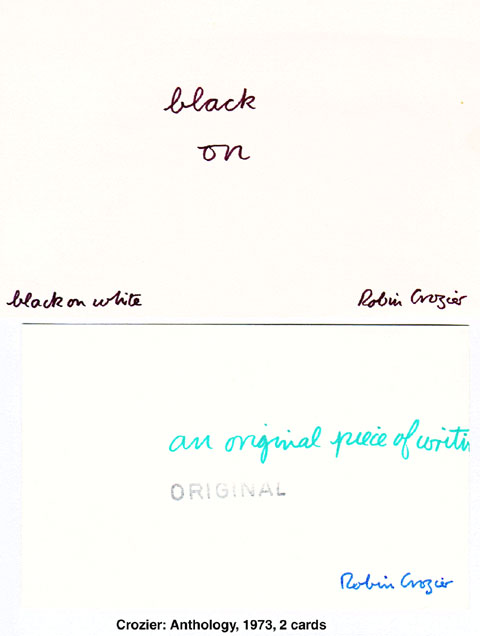 black
on
black on white
Robin Crozier
an original piece of writi
ORIGINAL
Robin Crozier
Crozier: Anthology, 1973, 2 cards